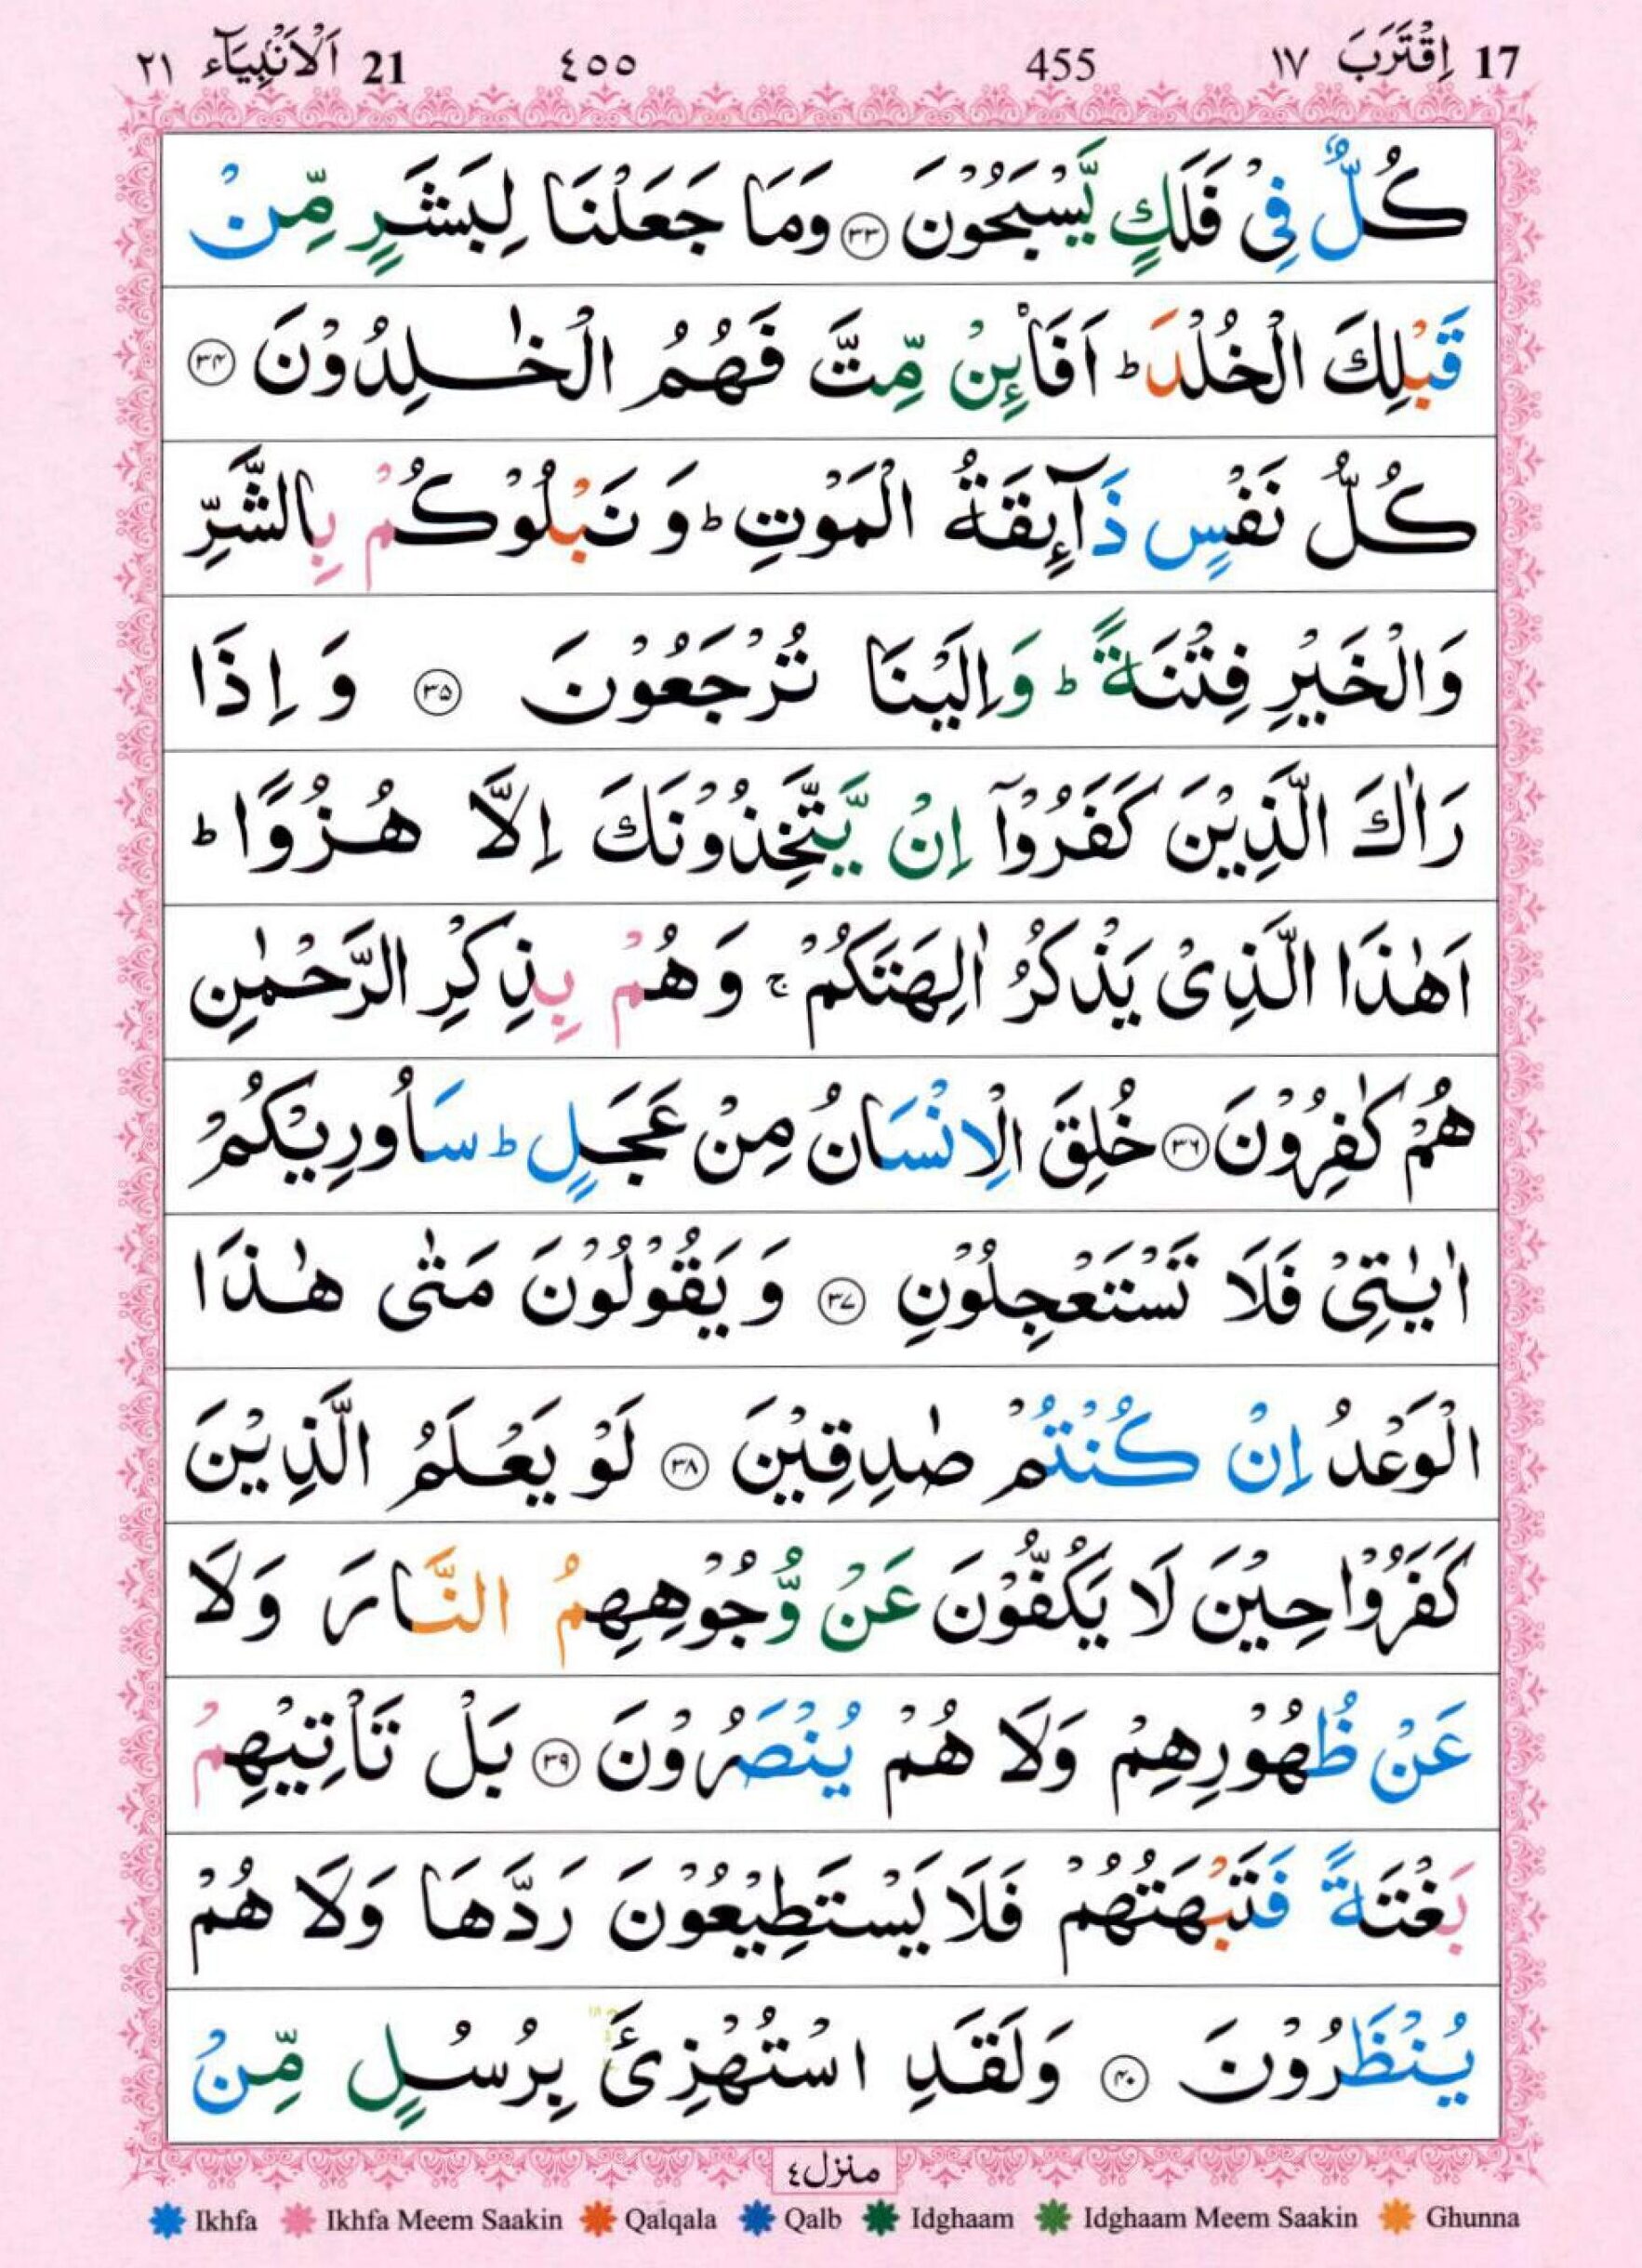 17 اِقْتَرَبَ ١٧ 455 ٤٥٥ 21 اَلْاَنْۢبِيَآء ٢١
كُلٌّ فِىْ فَلَكٍ يَّسْبَحُوْنَ ۝۳۳ وَمَا جَعَلْنَا لِبَشَرٍ مِّنْ
قَبْلِكَ الْخُلْدَ ؕ اَفَا۟ئِنْ مِّتَّ فَهُمُ الْخٰلِدُوْنَ ۝۳۴
كُلُّ نَفْسٍ ذَآئِقَةُ الْمَوْتِ ؕ وَ نَبْلُوْكُمْ بِالشَّرِّ
وَالْخَيْرِ فِتْنَةً ؕ وَاِلَيْنَا تُرْجَعُوْنَ ۝۳۵ وَ اِذَا
رَاٰكَ الَّذِيْنَ كَفَرُوْۤا اِنْ يَّتَّخِذُوْنَكَ اِلَّا هُزُوًا ؕ
اَهٰذَا الَّذِىْ يَذْكُرُ اٰلِهَتَكُمْ ۚ وَهُمْ بِذِكْرِ الرَّحْمٰنِ
هُمْ كٰفِرُوْنَ ۝۳۶ خُلِقَ الْاِنْسَانُ مِنْ عَجَلٍ ؕ سَاُورِيْكُمْ
اٰيٰتِىْ فَلَا تَسْتَعْجِلُوْنِ ۝۳۷ وَ يَقُوْلُوْنَ مَتٰى هٰذَا
الْوَعْدُ اِنْ كُنْتُمْ صٰدِقِيْنَ ۝۳۸ لَوْ يَعْلَمُ الَّذِيْنَ
كَفَرُوْا حِيْنَ لَا يَكُفُّوْنَ عَنْ وُّجُوْهِهِمُ النَّارَ وَلَا
عَنْ ظُهُوْرِهِمْ وَلَا هُمْ يُنْصَرُوْنَ ۝۳۹ بَلْ تَاْتِيْهِمْ
بَغْتَةً فَتَبْهَتُهُمْ فَلَا يَسْتَطِيْعُوْنَ رَدَّهَا وَلَا هُمْ
يُنْظَرُوْنَ ۝۴۰ وَلَقَدِ اسْتُهْزِئَ بِرُسُلٍ مِّنْ
منزل٤
Ikhfa Ikhfa Meem Saakin Qalqala Qalb Idghaam Idghaam Meem Saakin Ghunna